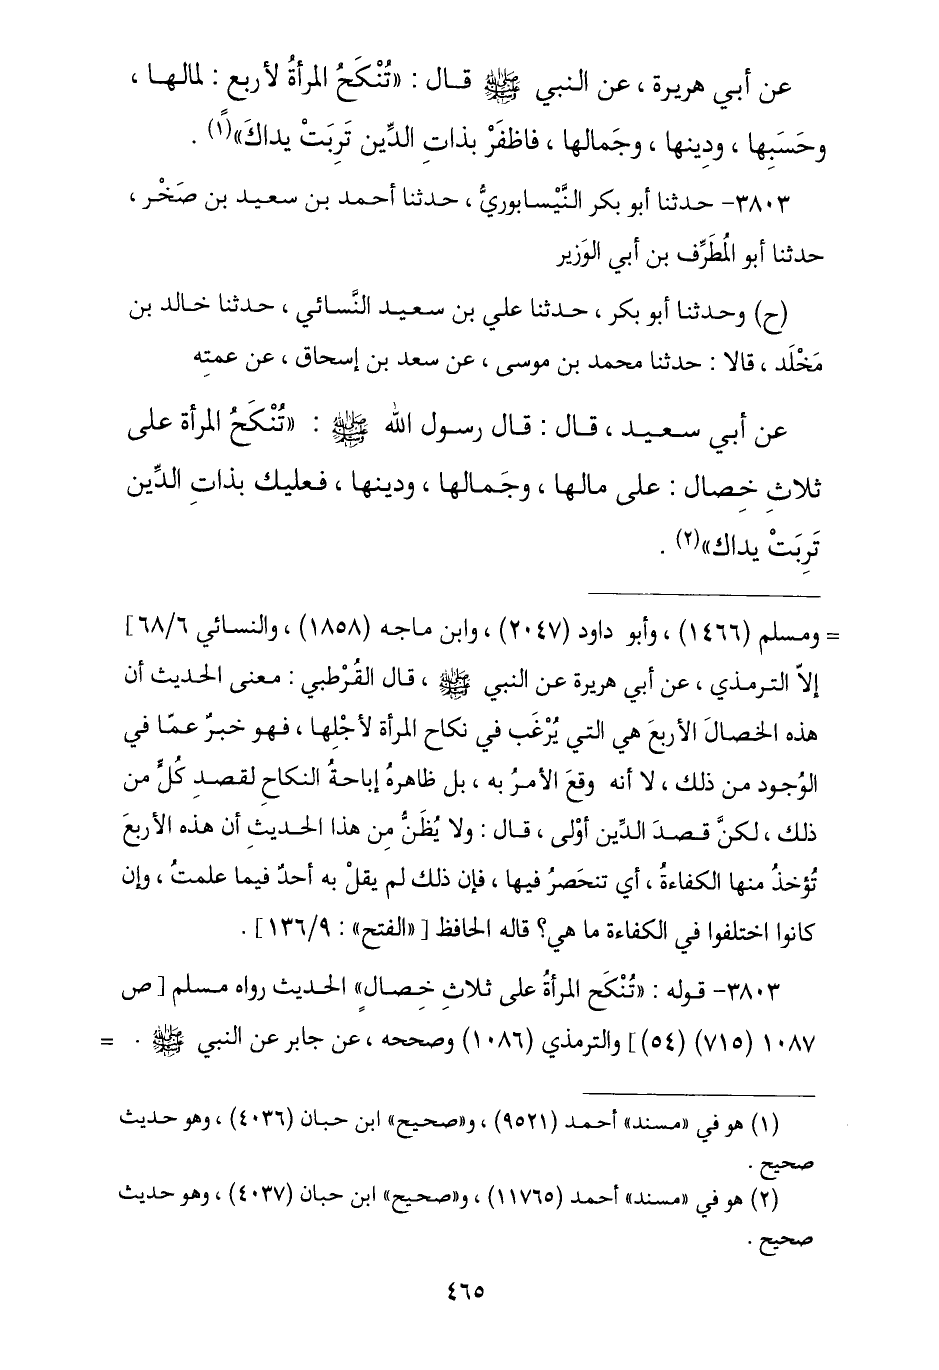 عن أبي هريرة ، عن النبي ﷺ قال : «تُنْكَحُ المرأةُ لأربع : لمالها ،
وحَسَبِها ، ودِينها ، وجَمالها ، فاظفَرْ بذاتِ الدِّين تَرِبَتْ يداكَ»(١) .
٣٨٠٣- حدثنا أبو بكر النَّيْسابوريُّ ، حدثنا أحمد بن سعيد بن صَخْر ،
حدثنا أبو المُطَرِّف بن أبي الوَزير
(ح) وحدثنا أبو بكر ، حدثنا علي بن سعيد النَّسائي ، حدثنا خالد بن
مَخْلَد ، قالا : حدثنا محمد بن موسى ، عن سعد بن إسحاق ، عن عمتِه
عن أبي سعيد ، قال : قال رسول الله ﷺ : «تُنْكَحُ المرأة على
ثلاثِ خِصال : على مالها ، وجَمالها ، ودينها ، فعليك بذاتِ الدِّين
تَرِبَتْ يداك»(٢) .
= ومسلم (١٤٦٦) ، وأبو داود (٢٠٤٧) ، وابن ماجه (١٨٥٨) ، والنسائي ٦/ ٦٨]
إلاّ الترمذي ، عن أبي هريرة عن النبي ﷺ ، قال القُرْطبي : معنى الحديث أن
هذه الخصالَ الأربعَ هي التي يُرْغَب في نكاح المرأة لأجْلِها ، فهو خبرٌ عمّا في
الوُجود من ذلك ، لا أنه وقعَ الأمرُ به ، بل ظاهرهُ إباحةُ النكاح لقصدِ كُلٍّ من
ذلك ، لكنَّ قصدَ الدِّين أوْلى ، قال : ولا يُظَنُّ مِن هذا الحديثِ أن هذه الأربعَ
تُؤخذُ منها الكفاءةُ ، أي تنحَصرُ فيها ، فإن ذلك لم يقلْ به أحدٌ فيما علمتُ ، وإن
كانوا اختلفوا في الكفاءة ما هي؟ قاله الحافظ [«الفتح» : ٩/ ١٣٦] .
٣٨٠٣- قوله : «تُنْكَح المرأةُ على ثلاثِ خصالٍ» الحديث رواه مسلم [ص
١٠٨٧ (٧١٥) (٥٤)] والترمذي (١٠٨٦) وصححه ، عن جابر عن النبي ﷺ . =
(١) هو في «مسند» أحمد (٩٥٢١) ، و«صحيح» ابن حبان (٤٠٣٦) ، وهو حديث
صحيح .
(٢) هو في «مسند» أحمد (١١٧٦٥) ، و«صحيح» ابن حبان (٤٠٣٧) ، وهو حديث
صحيح .
٤٦٥